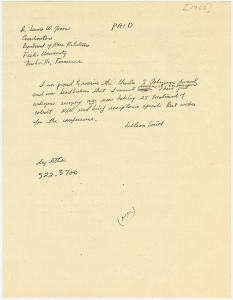 [1955]
PAID
Dr. Lewis W. Jones
Coordinator
Department of Race Relations
Fisk University
Nashville, Tennessee
I am proud to receive the Charles S Johnson Award
and am heartbroken that I cannot
undergone surgery and now taking 25 treatments of
cobalt Will send brief acceptance speech Best wishes
for the conference.
Lillian Smith
day letter
522-3700